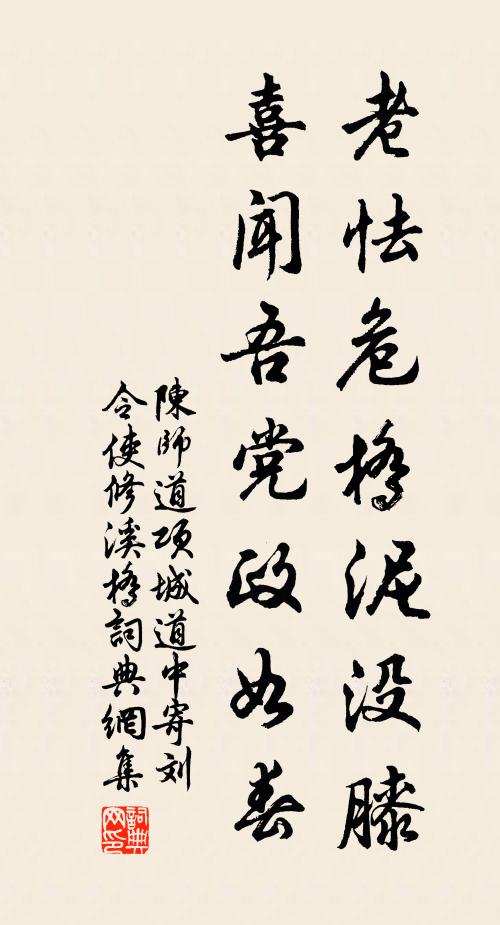 老怯危橋泥没膝
喜闻吾党政如春
陳師道項城道中寄刘
令使修溪橋詞典網集
詞典
网印